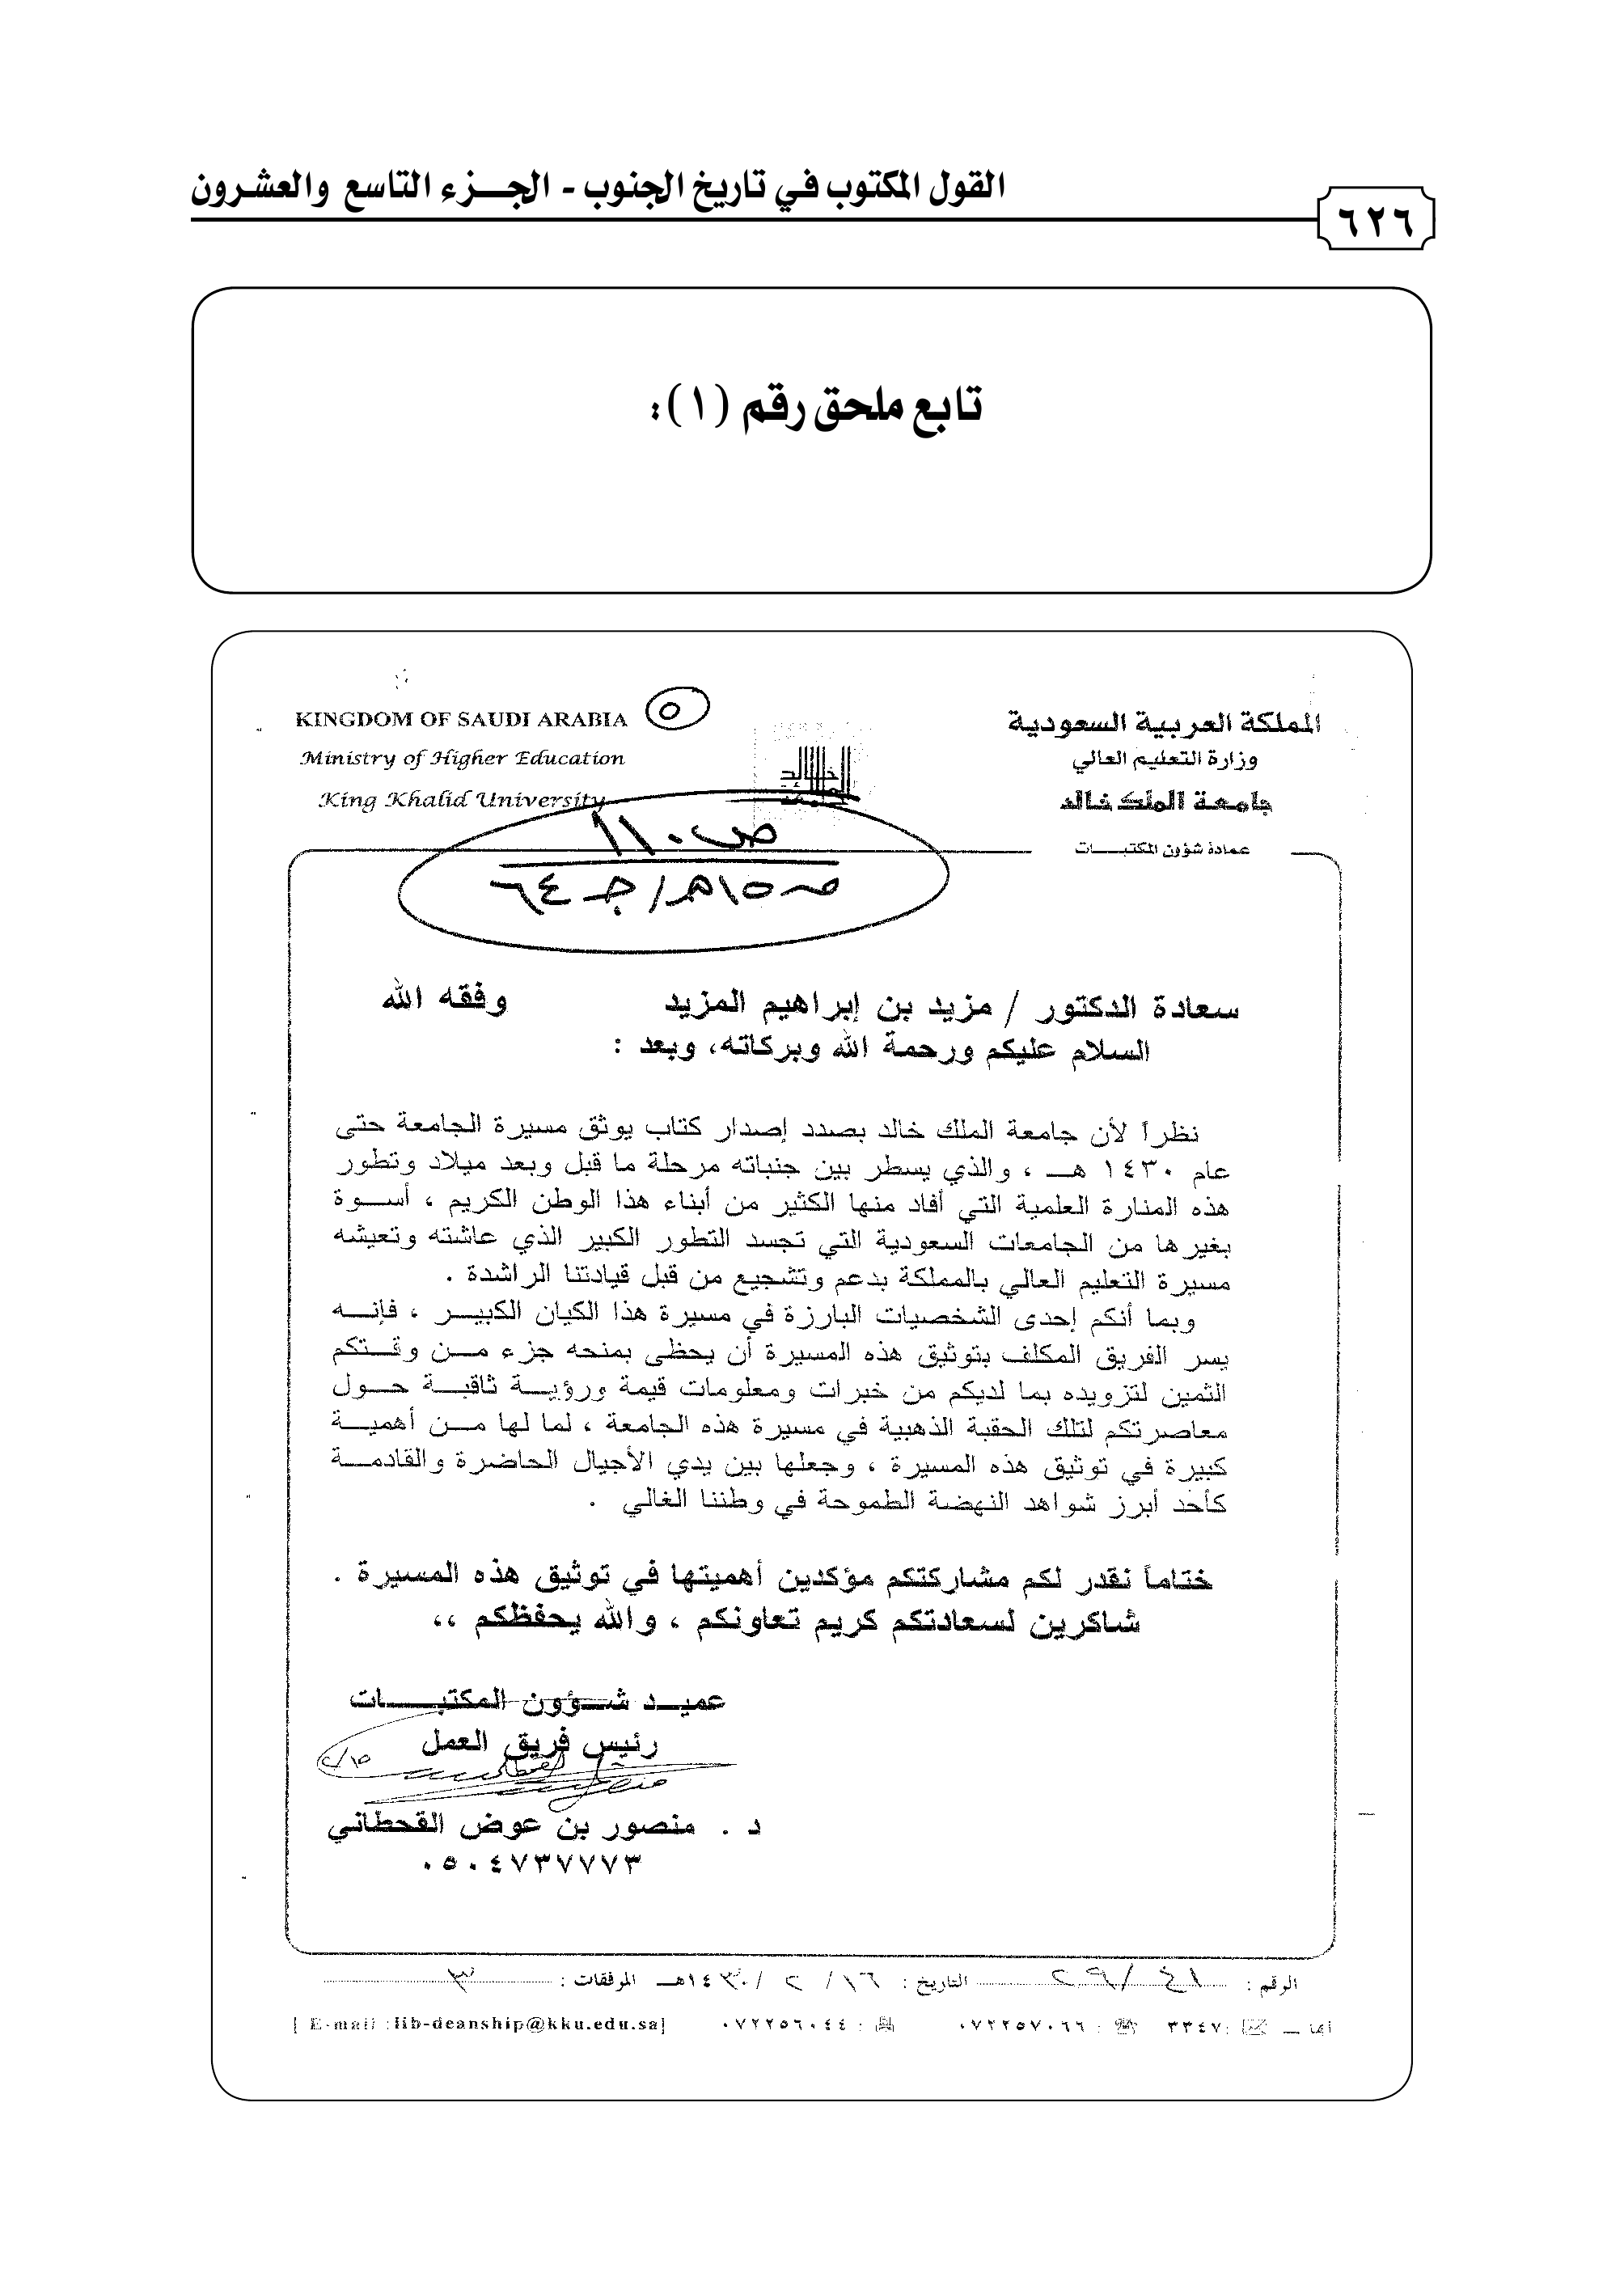 القول المكتوب في تاريخ الجنوب - الجـــزء التاسع والعشرون
٦٢٦
تابع ملحق رقم (١):
KINGDOM OF SAUDI ARABIA
Ministry of Higher Education
King Khalid University
المملكة العربية السعودية
وزارة التعليم العالي
جامعة الملك خالد
عمادة شؤون المكتبـــات
ص ١١٠
سعادة الدكتور / مزيد بن إبراهيم المزيد وفقه الله
السلام عليكم ورحمة الله وبركاته، وبعد :
نظراً لأن جامعة الملك خالد بصدد إصدار كتاب يوثق مسيرة الجامعة حتى
عام ١٤٣٠ هـ ، والذي يسطر بين جنباته مرحلة ما قبل وبعد ميلاد وتطور
هذه المنارة العلمية التي أفاد منها الكثير من أبناء هذا الوطن الكريم ، أســوة
بغيرها من الجامعات السعودية التي تجسد التطور الكبير الذي عاشته وتعيشه
مسيرة التعليم العالي بالمملكة بدعم وتشجيع من قبل قيادتنا الراشدة .
وبما أنكم إحدى الشخصيات البارزة في مسيرة هذا الكيان الكبيـــر ، فإنـــه
يسر الفريق المكلف بتوثيق هذه المسيرة أن يحظى بمنحه جزء مـــن وقـــتكم
الثمين لتزويده بما لديكم من خبرات ومعلومات قيمة ورؤيـــة ثاقبـــة حـــول
معاصرتكم لتلك الحقبة الذهبية في مسيرة هذه الجامعة ، لما لها مـــن أهميـــة
كبيرة في توثيق هذه المسيرة ، وجعلها بين يدي الأجيال الحاضرة والقادمـــة
كأحد أبرز شواهد النهضة الطموحة في وطننا الغالي .
ختاماً نقدر لكم مشاركتكم مؤكدين أهميتها في توثيق هذه المسيرة .
شاكرين لسعادتكم كريم تعاونكم ، والله يحفظكم ،،
عميـــد شـــؤون المكتبـــــات
رئيس فريق العمل
د . منصور بن عوض القحطاني
٠٥٠٤٧٣٧٧٧٣
الرقم : التاريخ : ١٦/ ٢ /١٤٣٠هـ المرفقات : ٣
أبها ـ : ٣٣٤٧ : ٠٧٢٢٥٧٠٦٦ : ٠٧٢٢٥٦٠٤٤ [ E-mail :lib-deanship@kku.edu.sa]